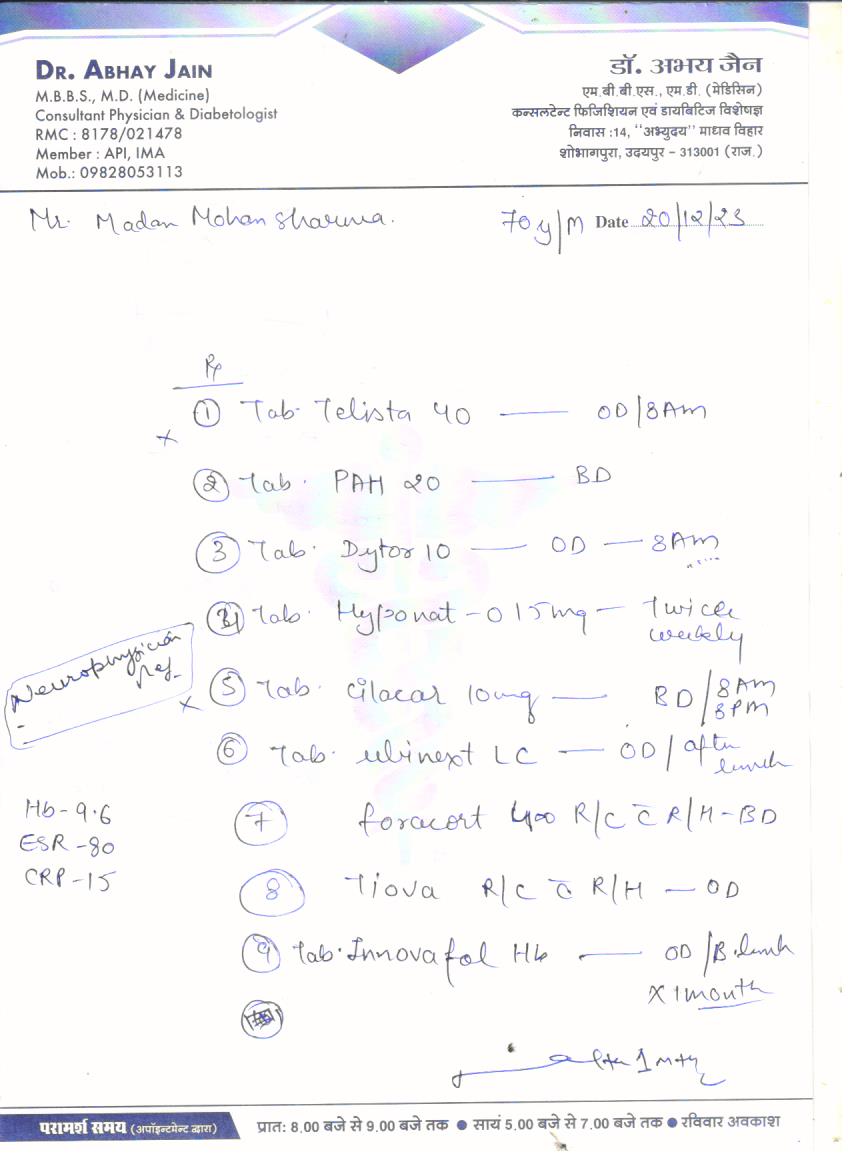 DR. ABHAY JAIN
M.B.B.S., M.D. (Medicine)
Consultant Physician & Diabetologist
RMC : 8178/021478
Member : API, IMA
Mob.: 09828053113
डॉ. अभय जैन
एम.बी.बी.एस., एम.डी. (मेडिसिन)
कन्सलटेन्ट फिजिशियन एवं डायबिटिज विशेषज्ञ
निवास :14, "अभ्युदय" माधव विहार
शोभागपुरा, उदयपुर - 313001 (राज.)
Mr. Madan Mohan Sharma. 70y/M Date 20/12/23
Rx
① Tab. Telista 40 — OD/8Am
x
② Tab. PAH 20 — BD
③ Tab. Dytor 10 — OD — 8Am
Tab. Hyponat-O 15mg — Twice
weekly
Neurophysician
Ref.
x ⑤ Tab. Cilacar 10mg — BD/8AM
8PM
⑥ Tab. ubinext LC — OD/after
lunch
Hb-9.6
ESR-80
CRP-15
⑦ foracort 400 R/C c̄ R/H-BD
⑧ Tiova R/C c̄ R/H — OD
⑨ Tab. Innovafol Hb — OD/B.lunch
X 1month
परामर्श समय (अपॉइन्टमेन्ट द्वारा) प्रातः 8.00 बजे से 9.00 बजे तक ● सायं 5.00 बजे से 7.00 बजे तक ● रविवार अवकाश